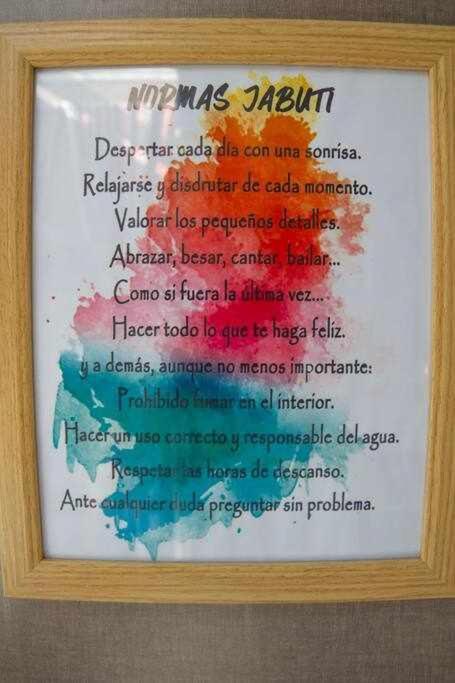 NORMAS JABUTI
Despertar cada día con una sonrisa.
Relajarse y disdrutar de cada momento.
Valorar los pequeños detalles.
Abrazar, besar, cantar, bailar...
Como si fuera la última vez...
Hacer todo lo que te haga feliz.
y a demás, aunque no menos importante:
Prohibido fumar en el interior.
Hacer un uso correcto y responsable del agua.
Respetar las horas de descanso.
Ante cualquier duda preguntar sin problema.